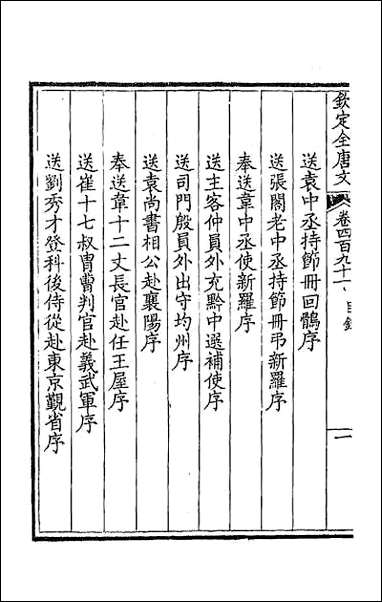 欽定全唐文 卷四百九十一 目錄 一
送袁中丞持節冊回鶻序
送張閣老中丞持節冊弔新羅序
奉送韋中丞使新羅序
送主客仲員外充黔中選補使序
送司門殷員外出守均州序
送袁尚書相公赴襄陽序
奉送韋十二丈長官赴任王屋序
送崔十七叔胄曹判官赴義武軍序
送劉秀才登科後侍從赴東京覲省序